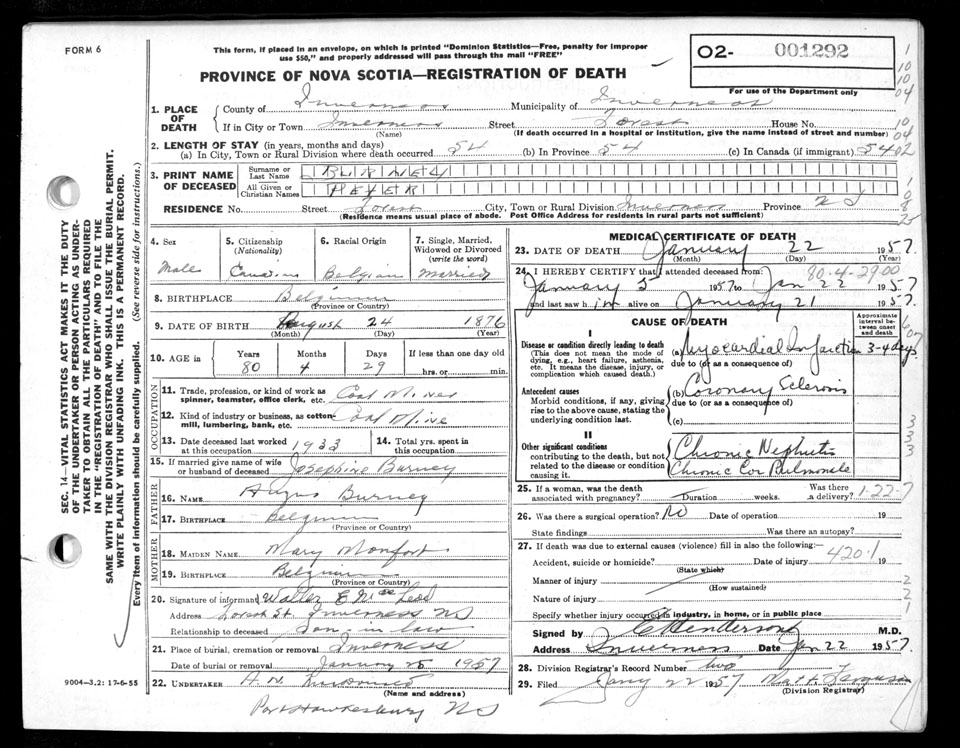 FORM 6
This form, if placed in an envelope, on which is printed "Dominion Statistics—Free, penalty for improper
use $50," and properly addressed will pass through the mail "FREE"
PROVINCE OF NOVA SCOTIA—REGISTRATION OF DEATH
02- 001292
For use of the Department only
1. PLACE OF DEATH
County of Inverness Municipality of Inverness
If in City or Town Inverness Street Forest House No.
(Name) (If death occurred in a hospital or institution, give the name instead of street and number)
2. LENGTH OF STAY (in years, months and days)
(a) In City, Town or Rural Division where death occurred 54 (b) In Province 54 (c) In Canada (if immigrant) 54
3. PRINT NAME OF DECEASED
Surname or Last Name BURNEY
All Given or Christian Names PETER
RESIDENCE No. Street Forest City, Town or Rural Division Inverness Province NS
(Residence means usual place of abode. Post Office Address for residents in rural parts not sufficient)
4. Sex
Male
5. Citizenship (Nationality)
Canadian
6. Racial Origin
Belgian
7. Single, Married, Widowed or Divorced (write the word)
Married
8. BIRTHPLACE Belgium
(Province or Country)
9. DATE OF BIRTH August 24 1876
(Month) (Day) (Year)
10. AGE in Years Months Days If less than one day old
80 4 29 hrs. or min.
OCCUPATION
11. Trade, profession, or kind of work as spinner, teamster, office clerk, etc. Coal Miner
12. Kind of industry or business, as cotton-mill, lumbering, bank, etc. Coal Mine
13. Date deceased last worked at this occupation 1933
14. Total yrs. spent in this occupation
15. If married give name of wife or husband of deceased Josephine Burney
FATHER
16. NAME Angus Burney
17. BIRTHPLACE Belgium
(Province or Country)
MOTHER
18. MAIDEN NAME Mary Monfort
19. BIRTHPLACE Belgium
(Province or Country)
20. Signature of informant Walter E McLeod
Address Forest St. Inverness NS
Relationship to deceased Son-in-law
21. Place of burial, cremation or removal Inverness
Date of burial or removal January 25 1957
22. UNDERTAKER A.N.
(Name and address)
Port Hawkesbury NS
9004—3.2: 17-6-55
MEDICAL CERTIFICATE OF DEATH
23. DATE OF DEATH January 22 1957
(Month) (Day)
24. I HEREBY CERTIFY that I attended deceased from:
80.4-2900
January 5 1957 to Jan 22 1957
and last saw him alive on January 21 1957.
CAUSE OF DEATH
Approximate interval between onset and death
I
Disease or condition directly leading to death
(This does not mean the mode of dying, e.g., heart failure, asthenia, etc. It means the disease, injury, or complication which caused death.)
(a) Myocardial Infarction 3-4 days
due to (or as a consequence of)
Antecedent causes
Morbid conditions, if any, giving rise to the above cause, stating the underlying condition last.
(b) Coronary Sclerosis
due to (or as a consequence of)
(c)
II
Other significant conditions
contributing to the death, but not related to the disease or condition causing it.
Chronic Nephritis
Chronic Cor Pulmonale
25. If a woman, was the death associated with pregnancy? Duration weeks. Was there a delivery? 1-22-7
26. Was there a surgical operation? No Date of operation 19
State findings Was there an autopsy?
27. If death was due to external causes (violence) fill in also the following:—
Accident, suicide or homicide? Date of injury 19
420.1
(State which)
Manner of injury
(How sustained)
Nature of injury
Specify whether injury occurred in industry, in home, or in public place
Signed by Henderson M.D.
Address Inverness Date Jan 22 1957
28. Division Registrar's Record Number two
29. Filed Jany 22 1957 Matt. Ferguson
(Division Registrar)
SEC. 14—VITAL STATISTICS ACT MAKES IT THE DUTY
OF THE UNDERTAKER OR PERSON ACTING AS UNDER-
TAKER TO OBTAIN ALL THE PARTICULARS REQUIRED
IN THE "REGISTRATION OF DEATH" AND TO FILE THE
SAME WITH THE DIVISION REGISTRAR WHO SHALL ISSUE THE BURIAL PERMIT.
WRITE PLAINLY WITH UNFADING INK. THIS IS A PERMANENT RECORD.
Every item of information should be carefully supplied. (See reverse side for instructions.)